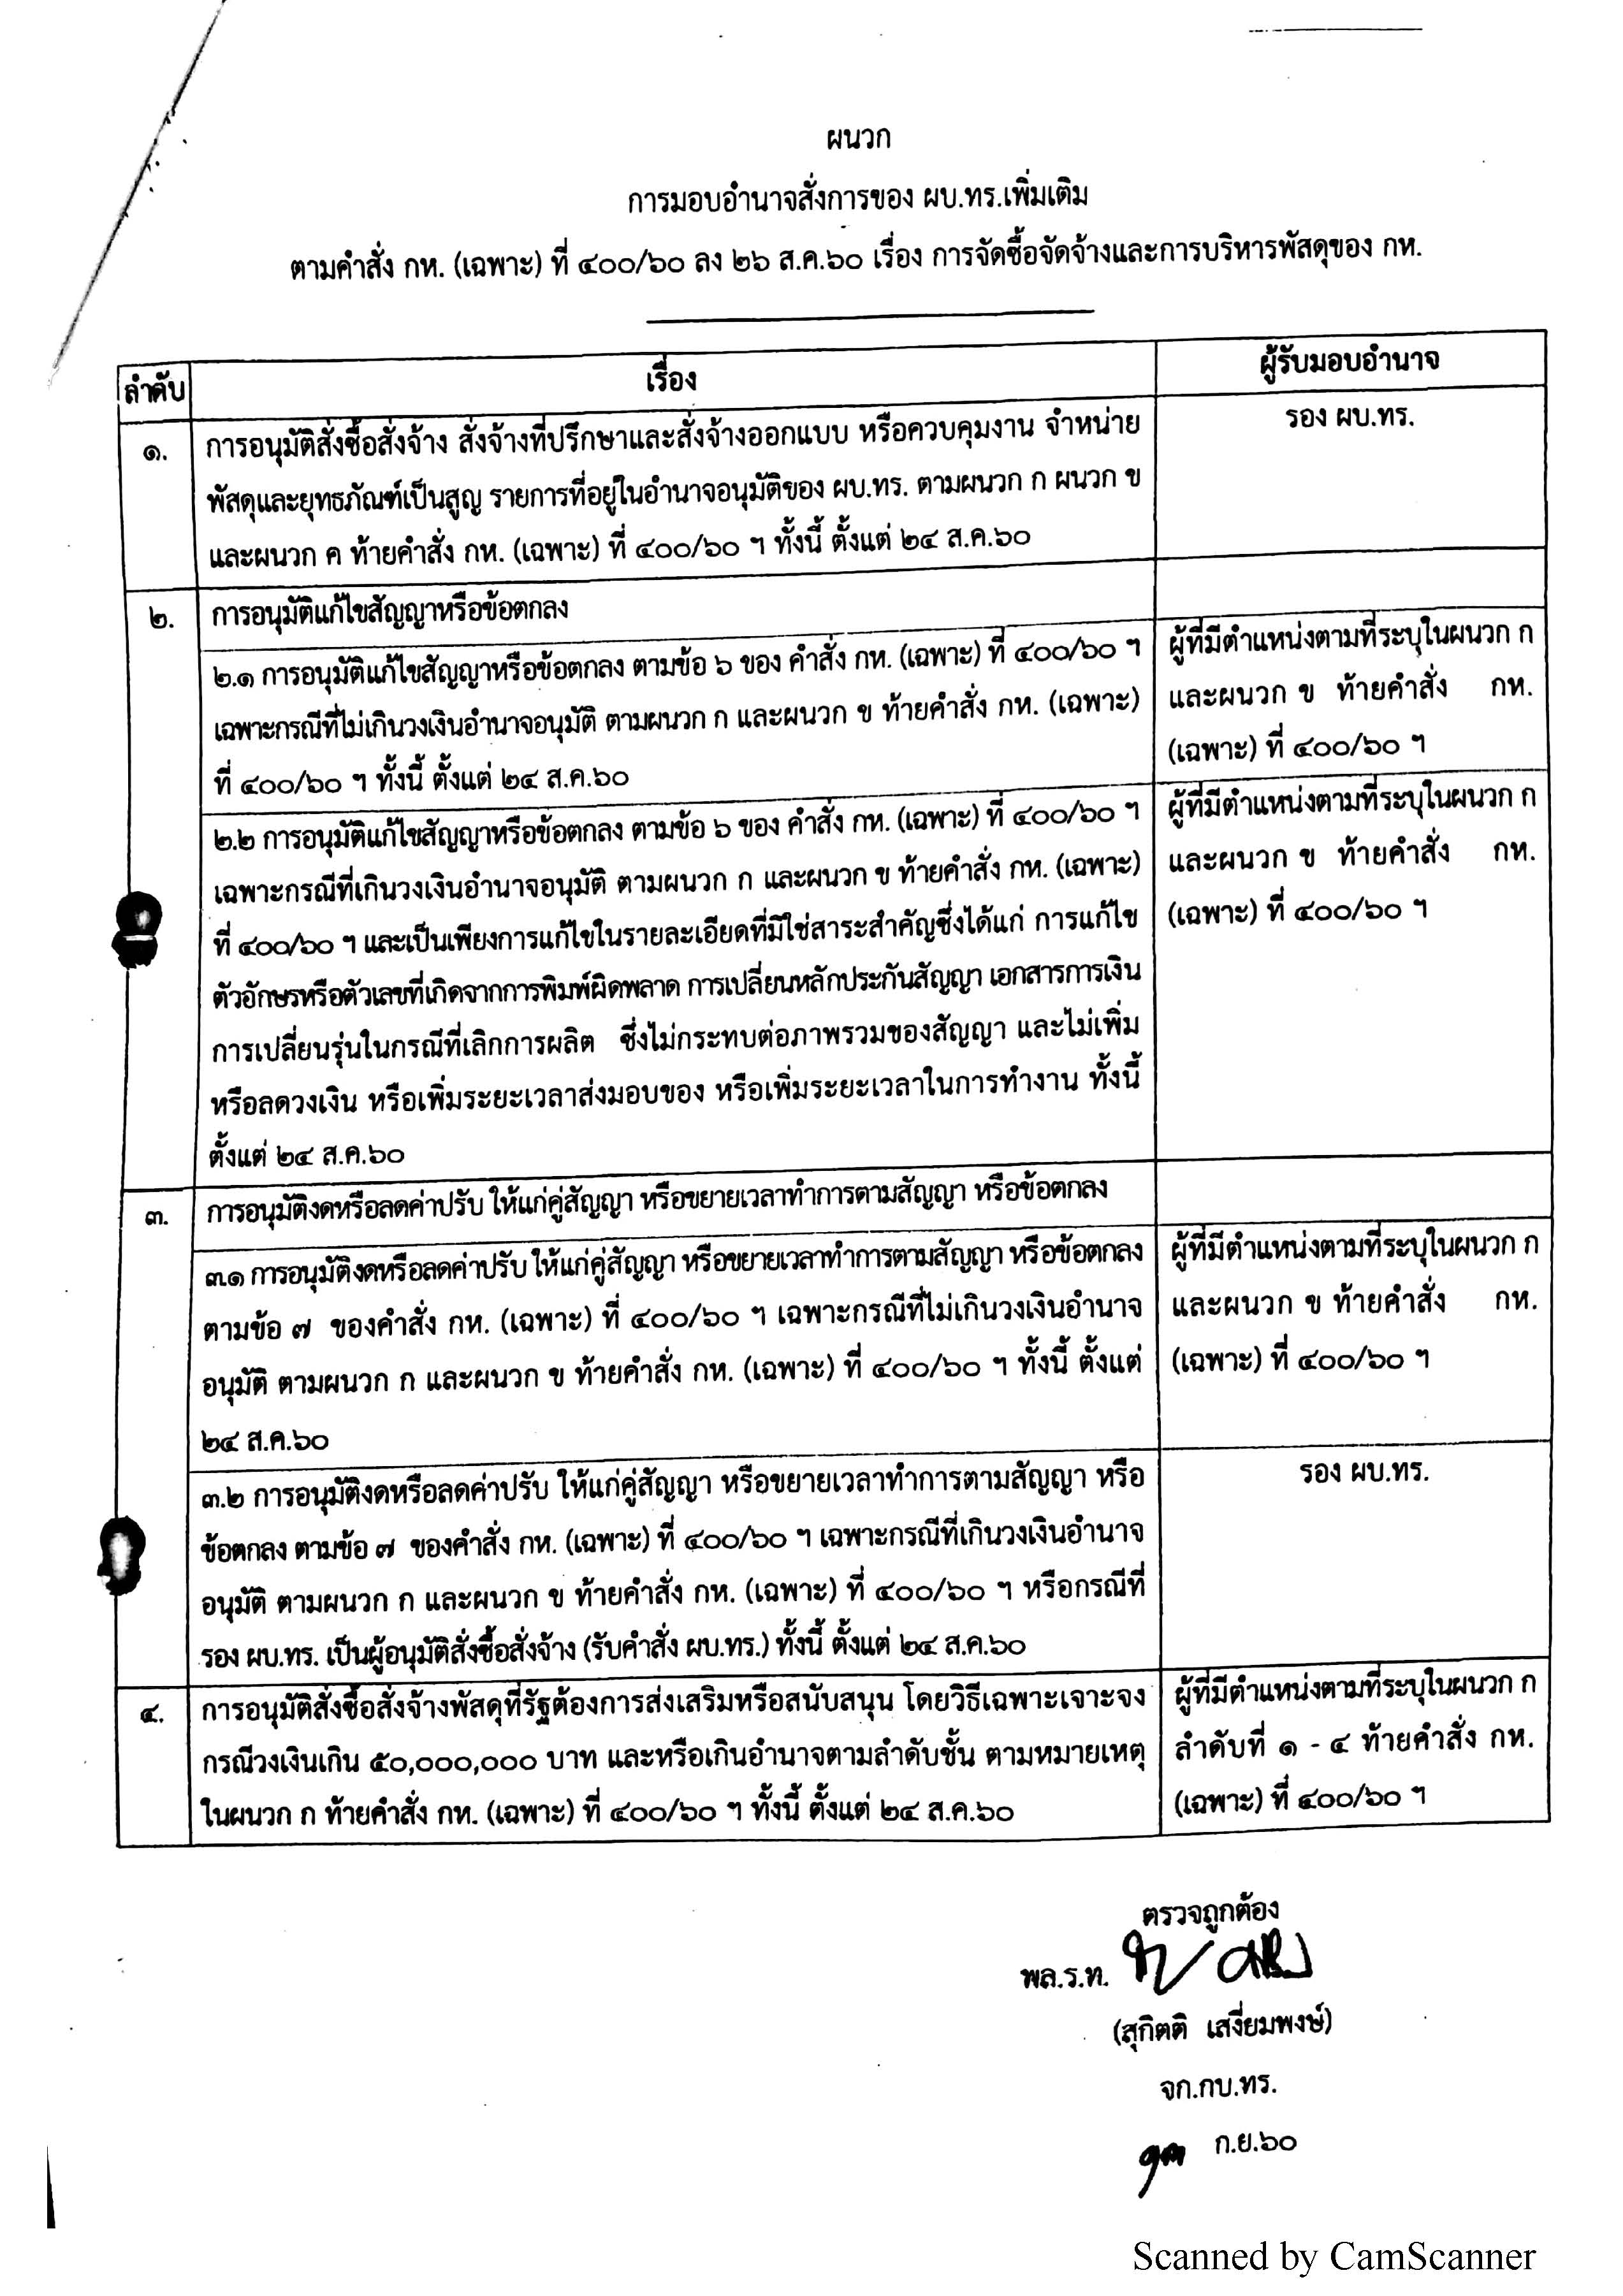 ผนวก
การมอบอำนาจสั่งการของ ผบ.ทร.เพิ่มเติม
ตามคำสั่ง กห. (เฉพาะ) ที่ ๔๐๐/๖๐ ลง ๒๖ ส.ค.๖๐ เรื่อง การจัดซื้อจัดจ้างและการบริหารพัสดุของ กห.
ลำดับ เรื่อง ผู้รับมอบอำนาจ
๑. การอนุมัติสั่งซื้อสั่งจ้าง สั่งจ้างที่ปรึกษาและสั่งจ้างออกแบบ หรือควบคุมงาน จำหน่าย รอง ผบ.ทร.
พัสดุและยุทธภัณฑ์เป็นสูญ รายการที่อยู่ในอำนาจอนุมัติของ ผบ.ทร. ตามผนวก ก ผนวก ข
และผนวก ค ท้ายคำสั่ง กห. (เฉพาะ) ที่ ๔๐๐/๖๐ ฯ ทั้งนี้ ตั้งแต่ ๒๔ ส.ค.๖๐
๒. การอนุมัติแก้ไขสัญญาหรือข้อตกลง
๒.๑ การอนุมัติแก้ไขสัญญาหรือข้อตกลง ตามข้อ ๖ ของ คำสั่ง กห. (เฉพาะ) ที่ ๔๐๐/๖๐ ฯ ผู้ที่มีตำแหน่งตามที่ระบุในผนวก ก
เฉพาะกรณีที่ไม่เกินวงเงินอำนาจอนุมัติ ตามผนวก ก และผนวก ข ท้ายคำสั่ง กห. (เฉพาะ) และผนวก ข ท้ายคำสั่ง กห.
ที่ ๔๐๐/๖๐ ฯ ทั้งนี้ ตั้งแต่ ๒๔ ส.ค.๖๐ (เฉพาะ) ที่ ๔๐๐/๖๐ ฯ
๒.๒ การอนุมัติแก้ไขสัญญาหรือข้อตกลง ตามข้อ ๖ ของ คำสั่ง กห. (เฉพาะ) ที่ ๔๐๐/๖๐ ฯ ผู้ที่มีตำแหน่งตามที่ระบุในผนวก ก
เฉพาะกรณีที่เกินวงเงินอำนาจอนุมัติ ตามผนวก ก และผนวก ข ท้ายคำสั่ง กห. (เฉพาะ) และผนวก ข ท้ายคำสั่ง กห.
ที่ ๔๐๐/๖๐ ฯ และเป็นเพียงการแก้ไขในรายละเอียดที่มิใช่สาระสำคัญซึ่งได้แก่ การแก้ไข (เฉพาะ) ที่ ๔๐๐/๖๐ ฯ
ตัวอักษรหรือตัวเลขที่เกิดจากการพิมพ์ผิดพลาด การเปลี่ยนหลักประกันสัญญา เอกสารการเงิน
การเปลี่ยนรุ่นในกรณีที่เลิกการผลิต ซึ่งไม่กระทบต่อภาพรวมของสัญญา และไม่เพิ่ม
หรือลดวงเงิน หรือเพิ่มระยะเวลาส่งมอบของ หรือเพิ่มระยะเวลาในการทำงาน ทั้งนี้
ตั้งแต่ ๒๔ ส.ค.๖๐
๓. การอนุมัติงดหรือลดค่าปรับ ให้แก่คู่สัญญา หรือขยายเวลาทำการตามสัญญา หรือข้อตกลง
๓.๑ การอนุมัติงดหรือลดค่าปรับ ให้แก่คู่สัญญา หรือขยายเวลาทำการตามสัญญา หรือข้อตกลง ผู้ที่มีตำแหน่งตามที่ระบุในผนวก ก
ตามข้อ ๗ ของคำสั่ง กห. (เฉพาะ) ที่ ๔๐๐/๖๐ ฯ เฉพาะกรณีที่ไม่เกินวงเงินอำนาจ และผนวก ข ท้ายคำสั่ง กห.
อนุมัติ ตามผนวก ก และผนวก ข ท้ายคำสั่ง กห. (เฉพาะ) ที่ ๔๐๐/๖๐ ฯ ทั้งนี้ ตั้งแต่ (เฉพาะ) ที่ ๔๐๐/๖๐ ฯ
๒๔ ส.ค.๖๐
๓.๒ การอนุมัติงดหรือลดค่าปรับ ให้แก่คู่สัญญา หรือขยายเวลาทำการตามสัญญา หรือ รอง ผบ.ทร.
ข้อตกลง ตามข้อ ๗ ของคำสั่ง กห. (เฉพาะ) ที่ ๔๐๐/๖๐ ฯ เฉพาะกรณีที่เกินวงเงินอำนาจ
อนุมัติ ตามผนวก ก และผนวก ข ท้ายคำสั่ง กห. (เฉพาะ) ที่ ๔๐๐/๖๐ ฯ หรือกรณีที่
รอง ผบ.ทร. เป็นผู้อนุมัติสั่งซื้อสั่งจ้าง (รับคำสั่ง ผบ.ทร.) ทั้งนี้ ตั้งแต่ ๒๔ ส.ค.๖๐
๔. การอนุมัติสั่งซื้อสั่งจ้างพัสดุที่รัฐต้องการส่งเสริมหรือสนับสนุน โดยวิธีเฉพาะเจาะจง ผู้ที่มีตำแหน่งตามที่ระบุในผนวก ก
กรณีวงเงินเกิน ๕๐,๐๐๐,๐๐๐ บาท และหรือเกินอำนาจตามลำดับชั้น ตามหมายเหตุ ลำดับที่ ๑ - ๔ ท้ายคำสั่ง กห.
ในผนวก ก ท้ายคำสั่ง กห. (เฉพาะ) ที่ ๔๐๐/๖๐ ฯ ทั้งนี้ ตั้งแต่ ๒๔ ส.ค.๖๐ (เฉพาะ) ที่ ๔๐๐/๖๐ ฯ
ตรวจถูกต้อง
พล.ร.ท.
(สุกิตติ เสงี่ยมพงษ์)
จก.กบ.ทร.
๑๓ ก.ย.๖๐
Scanned by CamScanner